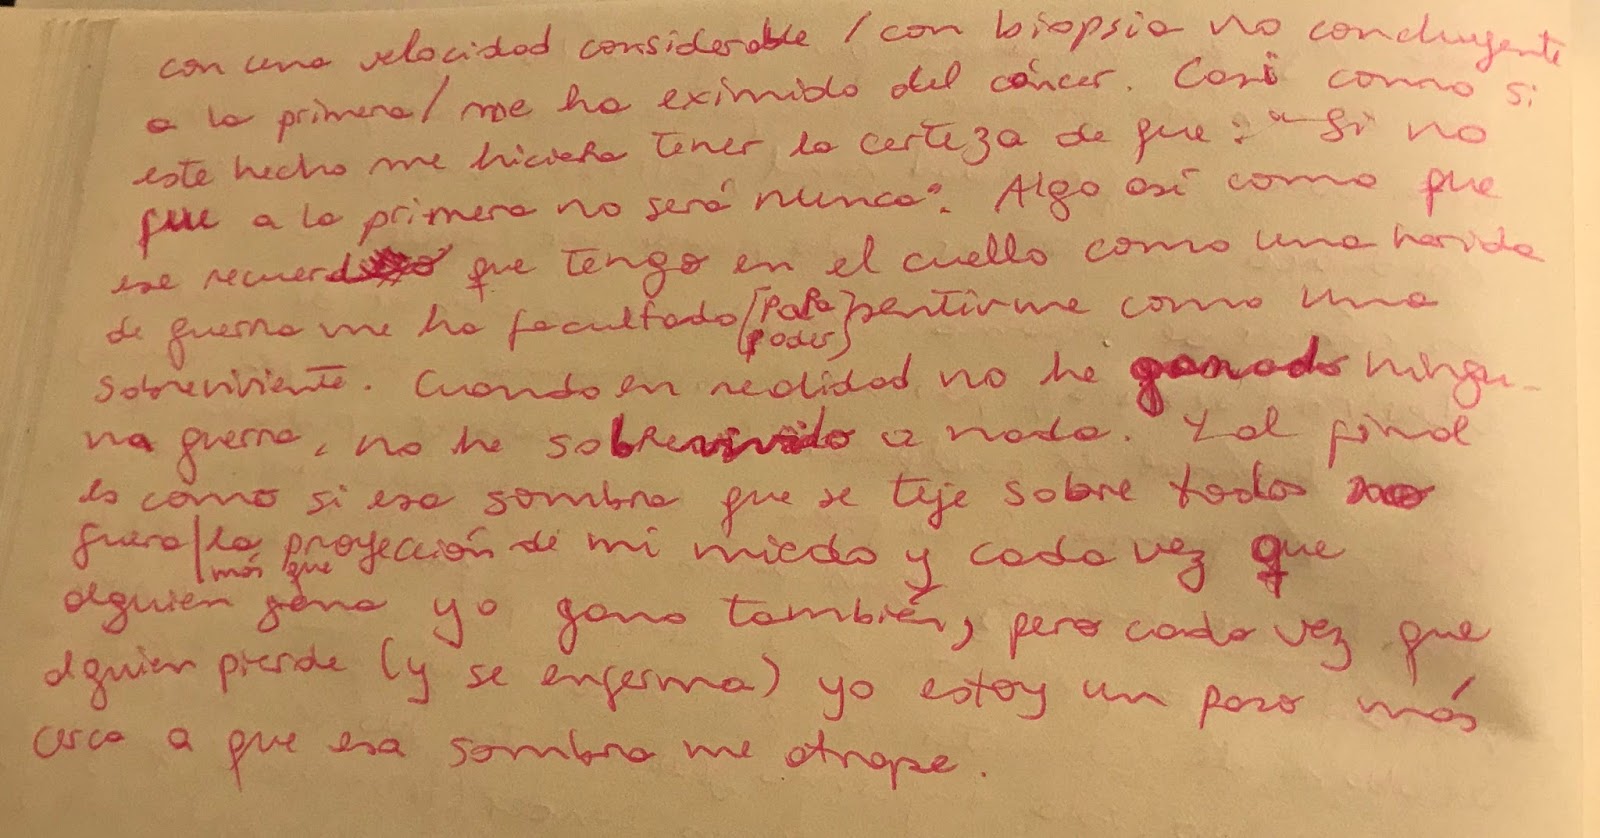 con una velocidad considerable / con biopsia no concluyente
a la primera / me ha eximido del cáncer. Casi como si
este hecho me hiciera tener la certeza de que: "Si no
fue a la primera no será nunca". Algo así como que
ese recuerdo que tengo en el cuello como una herida
de guerra me ha facultado [para poder] sentirme como una
sobreviviente. Cuando en realidad no he ganado ningu-
na guerra, no he sobrevivido a nada. Y al final
es como si esa sombra que se teje sobre todos
fuera / la proyección de mi miedo y cada vez que
más que
alguien gana yo gano también, pero cada vez que
alguien pierde (y se enferma) yo estoy un paso más
cerca a que esa sombra me atrape.